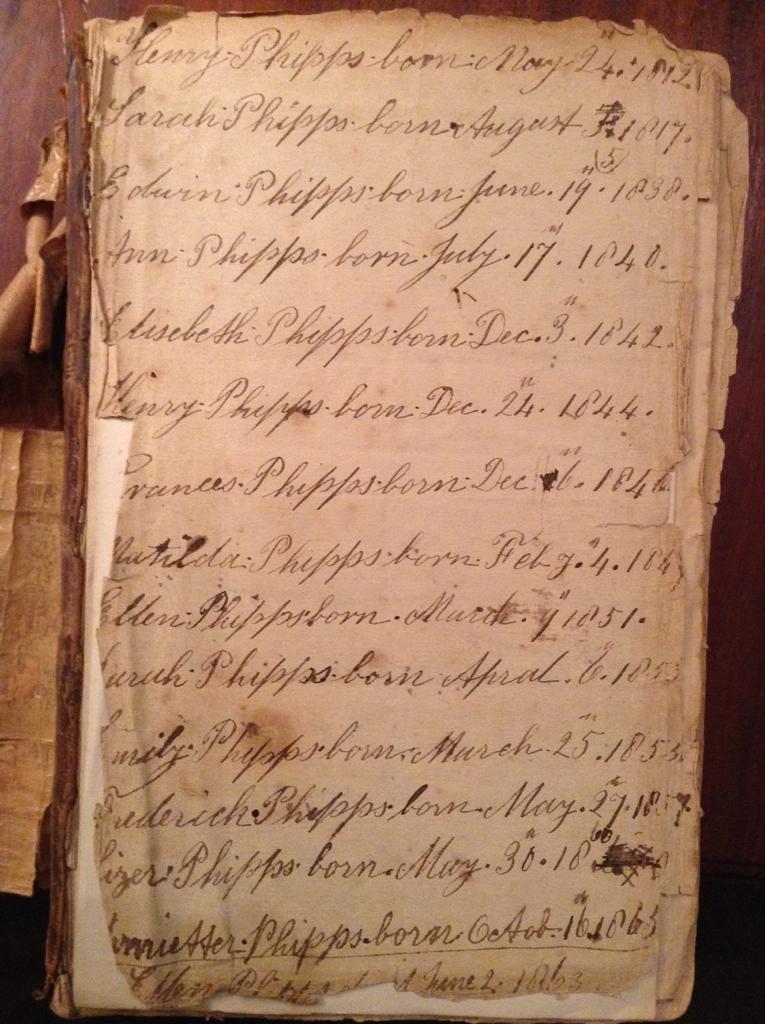 Henry Phipps born May 24" 1812
Sarah Phipps born August 1817.
(5)
Edwin Phipps born June. 19" 1838.
Ann Phipps born July. 17" 1840.
Elisebeth Phipps born Dec. 3" 1842.
Henry Phipps born Dec. 24" 1844.
Frances Phipps born Dec 6" 184
Matilda Phipps born Feb 4" 184
Ellen Phipps born March 9" 1851.
Sarah Phipps born Apral 6" 1853
Emily Phipps born March 25" 1855
Frederick Phipps born May. 27" 1857.
izer Phipps born May. 30" 18 60
nrietter Phipps born Octob. 16" 1863
Ellen June 2. 1863